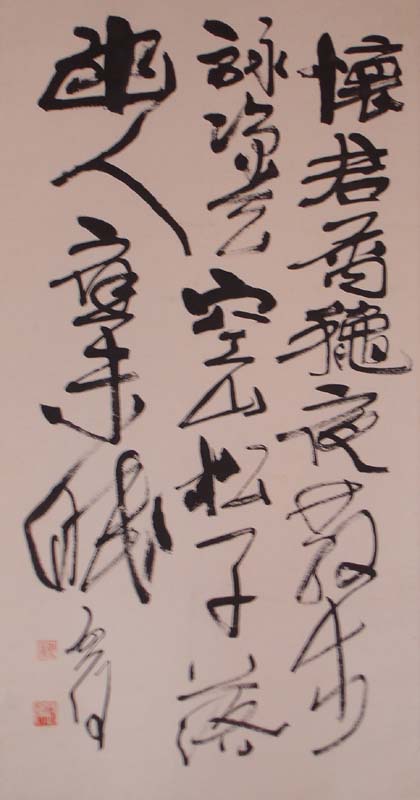 懷君屬龝夜散步
詠涼天空山松子落
幽人應未眠